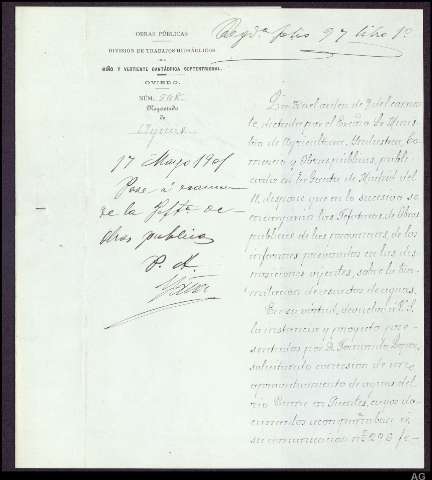 Regda folio 97 libro 1º
OBRAS PÚBLICAS
DIVISIÓN DE TRABAJOS HIDRÁULICOS
MIÑO Y VERTIENTE CANTÁBRICA SEPTENTRIONAL.
OVIEDO.
NÚM.
Negociado
de
Aguas
17 Mayo 1901
Pase á
de la Jeftra de
obras publicas
P. A.
La Real orden de
te, dictada por el Excmo Sr Minis-
tro de Agricultura, Industria, Co-
mercio y Obras públicas, publi-
cada en la Gaceta de Madrid del
11, dispone que en lo sucesivo se
las Jefaturas de Obras
públicas de las provincias, de los
informes prevenidos en las dis-
posiciones vigentes, sobre la tra-
mitación de asuntos de aguas.
En su virtud, devuelvo á V.S.
la instancia y proyecto pre-
sentados por D. Fernando
solicitando concesion de un
aprovechamiento de aguas del
río en cuyos do-
cumentos acompañaban á
su comunicación nº 296 fe-
AG